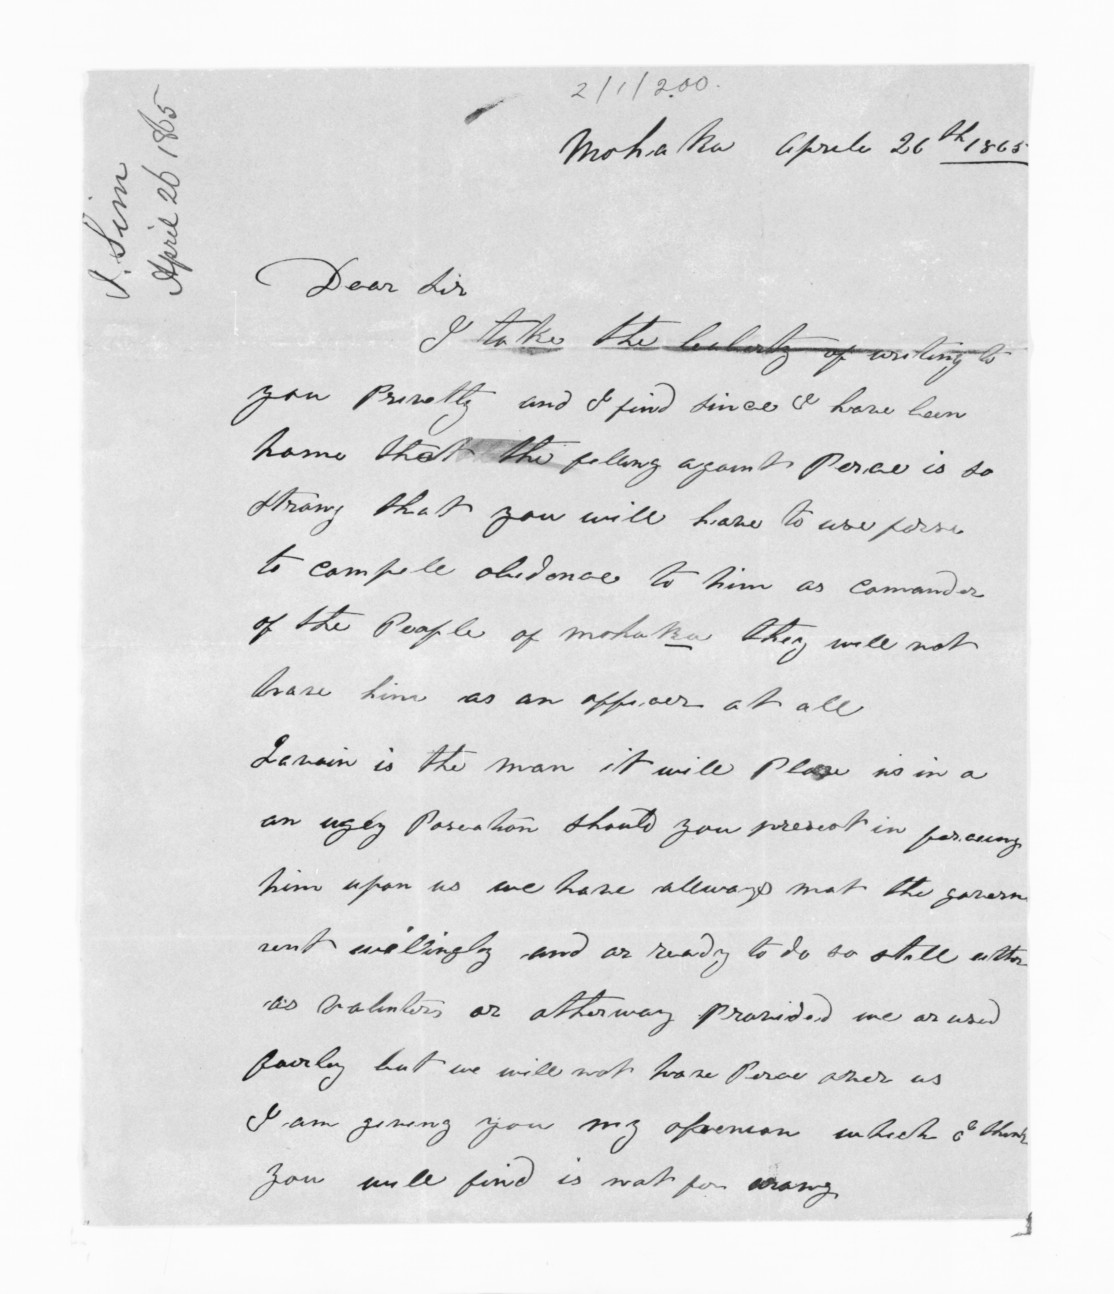 2/1/200.
J. Sim
April 26 1865
Mohaka Aprile 26th 1865
Dear Sir
I take the leaberty of writing to
you Privetly and I find since I have been
home that the feleng against Perce is so
strong that you will have to use forse
to compele obedence to him as comander
of the People of mohaka they will not
have him as an officer at all
is the man it will Place us in a
an ugly Poseation should you presest in forceing
him upon us we have allways mat the govern
ment willingly and ar ready to do so still ether
as valinters or otherway Provided we ar used
fairly but we will not have Perce over us
I am geveng you my openion which I think
you will find is not far wrong